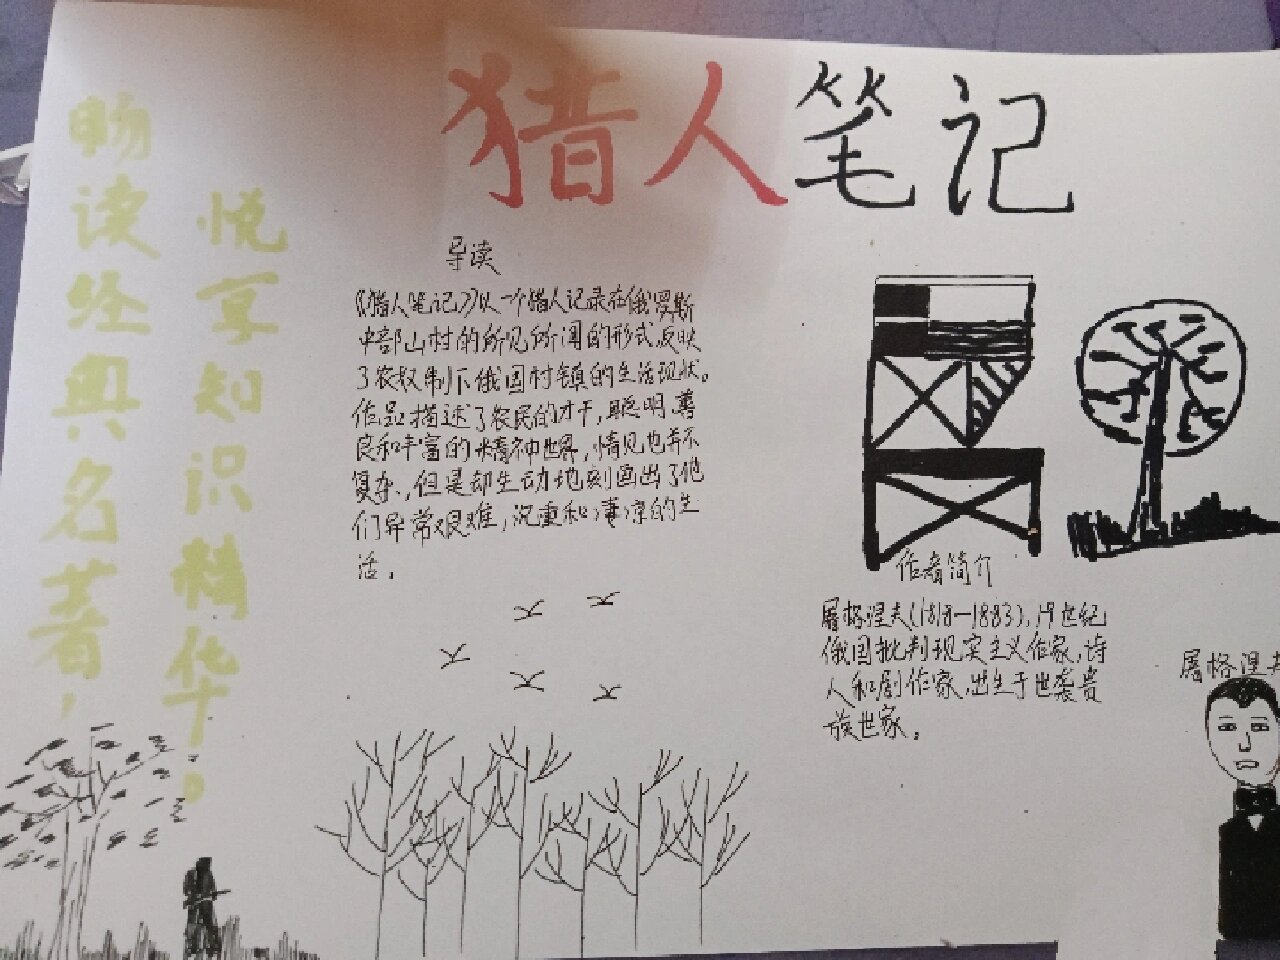 猎人笔记
畅读经典名著，
悦享知识精华。
导读
《猎人笔记》以一个猎人记录在俄罗斯
中部山村的所见所闻的形式反映
了农奴制下俄国村镇的生活现状。
作品描述了农民的才干，聪明，善
良和丰富的精神世界，情见也并不
复杂，但是却生动地刻画出了他
们异常艰难，沉重和凄凉的生
活。
作者简介
屠格涅夫(1818—1883)，19世纪
俄国批判现实主义作家，诗
人和剧作家，出生于世袭贵
族世家。
屠格涅夫